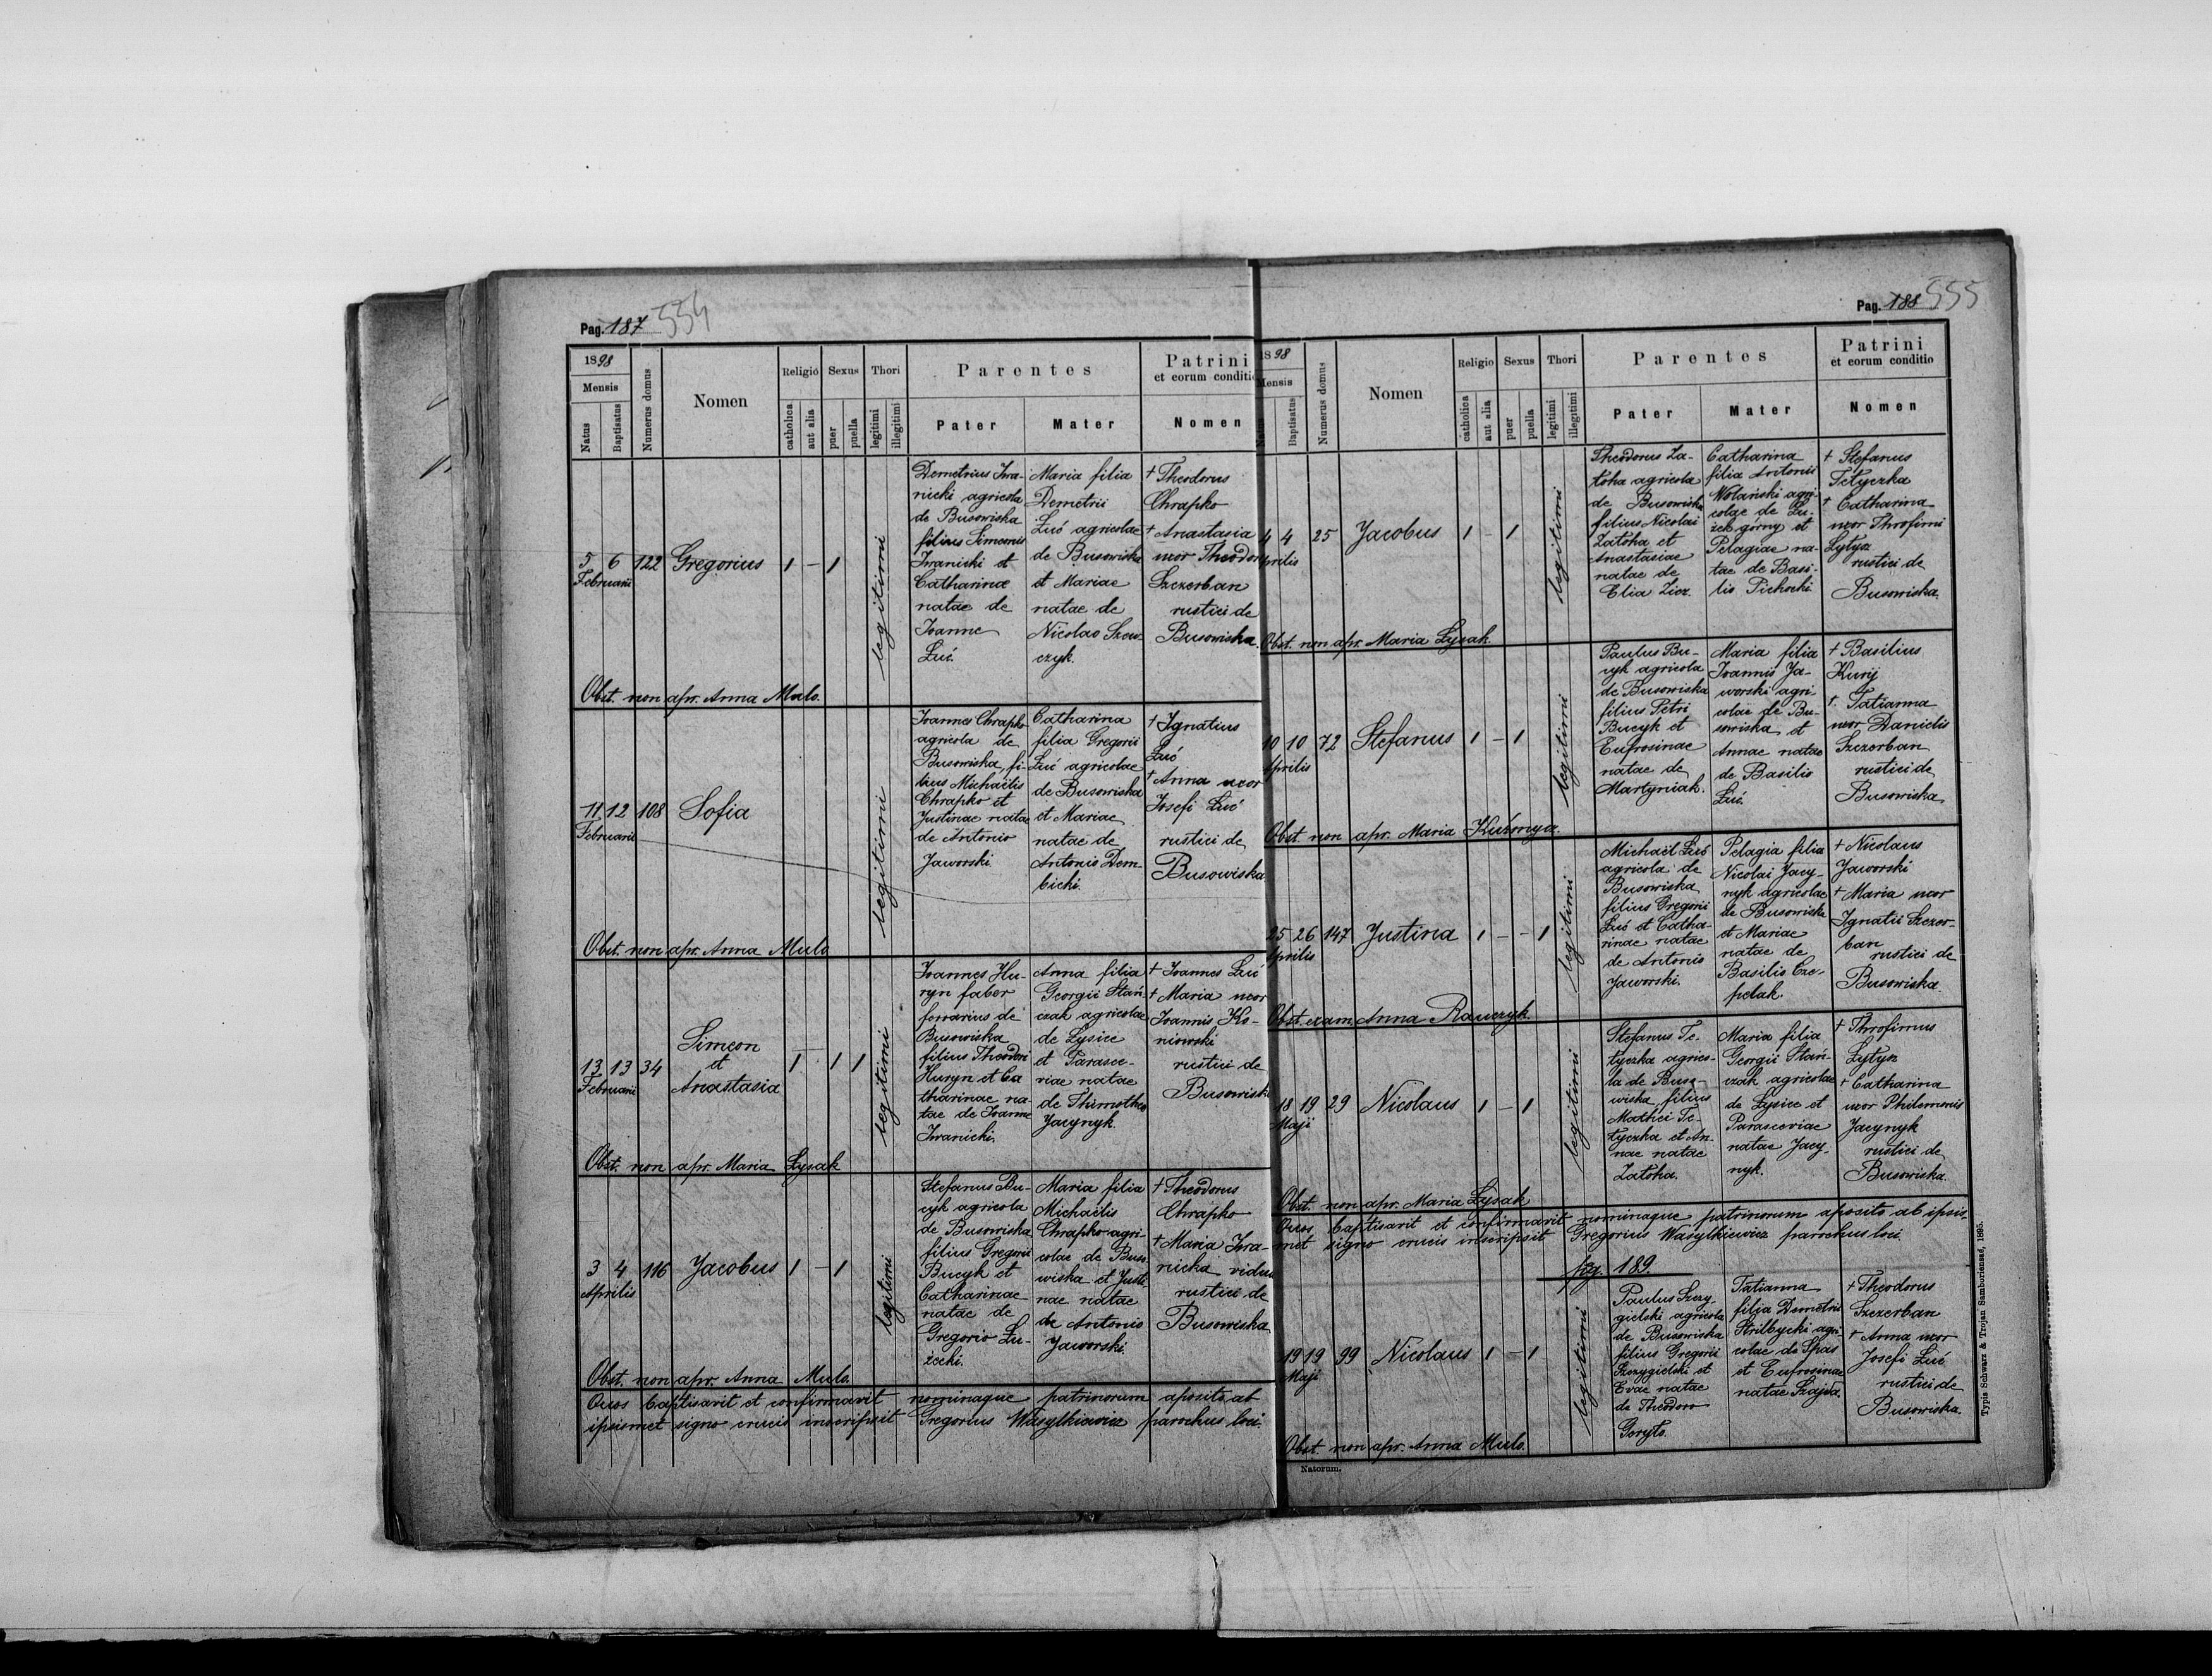 Pag. 187 554
1898
Mensis
Natus
Baptisatus
Numerus domus
Nomen
Religio
catholica
aut alia
Sexus
puer
puella
Thori
legitimi
illegitimi
Parentes
Pater
Mater
Patrini
et eorum conditio
Nomen
5 6 122 Gregorius 1 - 1
Februarii
legitimi
Demetrius Iwa-
nicki agricola
de Busowiska
filius Simeonis
Iwanicki et
Catharinae
natae de
Joanne
Łuć.
Maria filia
Demetrii
Łuć agricolae
de Busowiska
et Mariae
natae de
Nicolao Szew-
czyk.
† Theodorus
Chrapko
† Anastasia
uxor Theodori
Szczerban
rustici de
Busowiska.
Obst. non apr. Anna Mulo.
11 12 108 Sofia
Februarii
legitimi
Joannes Chrapko
agricola de
Busowiska, fi-
lius Michaëlis
Chrapko et
Justinae natae
de Antonio
Jaworski.
Catharina
filia Gregorii
Łuć agricolae
de Busowiska
et Mariae
natae de
Antonio Dem-
bicki.
† Ignatius
Łuć
† Anna uxor
Josefi Łuć
rustici de
Busowiska.
Obst. non apr. Anna Mulo
13 13 34 Simeon
et
Anastasia 1 1 1
Februarii
legitimi
Joannes Hu-
ryn faber
ferrarius de
Busowiska
filius Theodori
Huryn et Ca
tharinae na-
tae de Joanne
Iwanicki.
Anna filia
Georgii Stań-
czak agricolae
de Lysice
et Parasce-
viae natae
de Thimotheo
Jacynyk.
† Joannes Łuć
† Maria uxor
Joannis Ko-
niowski
rustici de
Busowiska
Obst. non apr. Maria Łysak
3 4 116 Jacobus 1 - 1
Aprilis
legitimi
Stefanus Bu-
cyk agricola
de Busowiska
filius Gregorii
Bucyk et
Catharinae
natae de
Gregorio Łu-
żecki.
Maria filia
Michaëlis
Chrapko agri-
colae de Buso
wiska et Justi
nae natae
de Antonio
Jaworski.
† Theodorus
Chrapko
† Maria Iwa-
nicka vidua
rustici de
Busowiska
Obst. non apr. Anna Mulo.
Quos baptisavit et confirmavit nominaque patrinorum aposito ab
ipsismet signo crucis inscripsit Gregorius Wasylkiewicz parochus loci.
Pag. 188 555
1898
Mensis
Natus
Baptisatus
Numerus domus
Nomen
Religio
catholica
aut alia
Sexus
puer
puella
Thori
legitimi
illegitimi
Parentes
Pater
Mater
Patrini
et eorum conditio
Nomen
4 4 25 Jacobus 1 - 1
Aprilis
legitimi
Theodorus Za-
toka agricola
de Busowiska
filius Nicolai
Zatoka et
Anastasiae
natae de
Elia Zicz.
Catharina
filia Antonii
Wolański agri-
colae de Łu-
żek górny et
Pelagiae na-
tae de Basi-
lio Pichocki.
† Stefanus
Tetyczka
† Catharina
uxor Throfimi
Łytyn
rustici de
Busowiska.
Obst. non apr. Maria Łysak.
10 10 72 Stefanus 1 - 1
Aprilis
legitimi
Paulus Bu-
cyk agricola
de Busowiska
filius Petri
Bucyk et
Eufrosinae
natae de
Martyniak.
Maria filia
Joannis Ja-
worski agri-
colae de Bu-
sowiska et
Annae natae
de Basilio
Łuć.
† Basilius
Kurij
† Tatianna
uxor Danielis
Szczerban
rustici de
Busowiska
Obst. non apr. Maria Kuźmycz.
25 26 147 Justina 1 - - 1
Aprilis
legitimi
Michaël Łuć
agricola de
Busowiska
filius Gregorii
Łuć et Catha-
rinae natae
de Antonio
Jaworski.
Pelagia filia
Nicolai Jacy-
nyk agricolae
de Busowiska
et Mariae
natae de
Basilio Cze-
pelak.
† Nicolaus
Jaworski
† Maria uxor
Ignatii Szczer-
ban
rustici de
Busowiska.
Obst. exam. Anna Rawczyk.
18 19 29 Nicolaus 1 - 1
Maji
legitimi
Stefanus Te-
tyczka agrico-
la de Buso-
wiska filius
Mathei Te-
tyczka et An-
nae natae
Zatoka.
Maria filia
Georgii Stań-
czak agricolae
de Lysice et
Parasceviae
natae Jacy-
nyk.
† Throfimus
Łytyn
† Catharina
uxor Philemonis
Jacynyk
rustici de
Busowiska.
Obst. non apr. Maria Łysak
Quos baptisavit et confirmavit nominaque patrinorum aposito ab ipsis-
met signo crucis inscripsit Gregorius Wasylkiewicz parochus loci
pag. 189.
19 19 99 Nicolaus 1 - 1
Maji
legitimi
Paulus Szczy-
gielski agricola
de Busowiska
filius Gregorii
Szczygielski et
Evae natae
de Theodoro
Goryto.
Tatianna
filia Demetrii
Strilbycki agri-
colae de Spas
et Eufrosinae
natae Szajda.
† Theodorus
Szczerban
† Anna uxor
Josefi Łuć
rustici de
Busowiska.
Obst. non apr. Anna Mulo.
Natorum.
Typis Schwarz & Trojan Samboriensad, 1895.